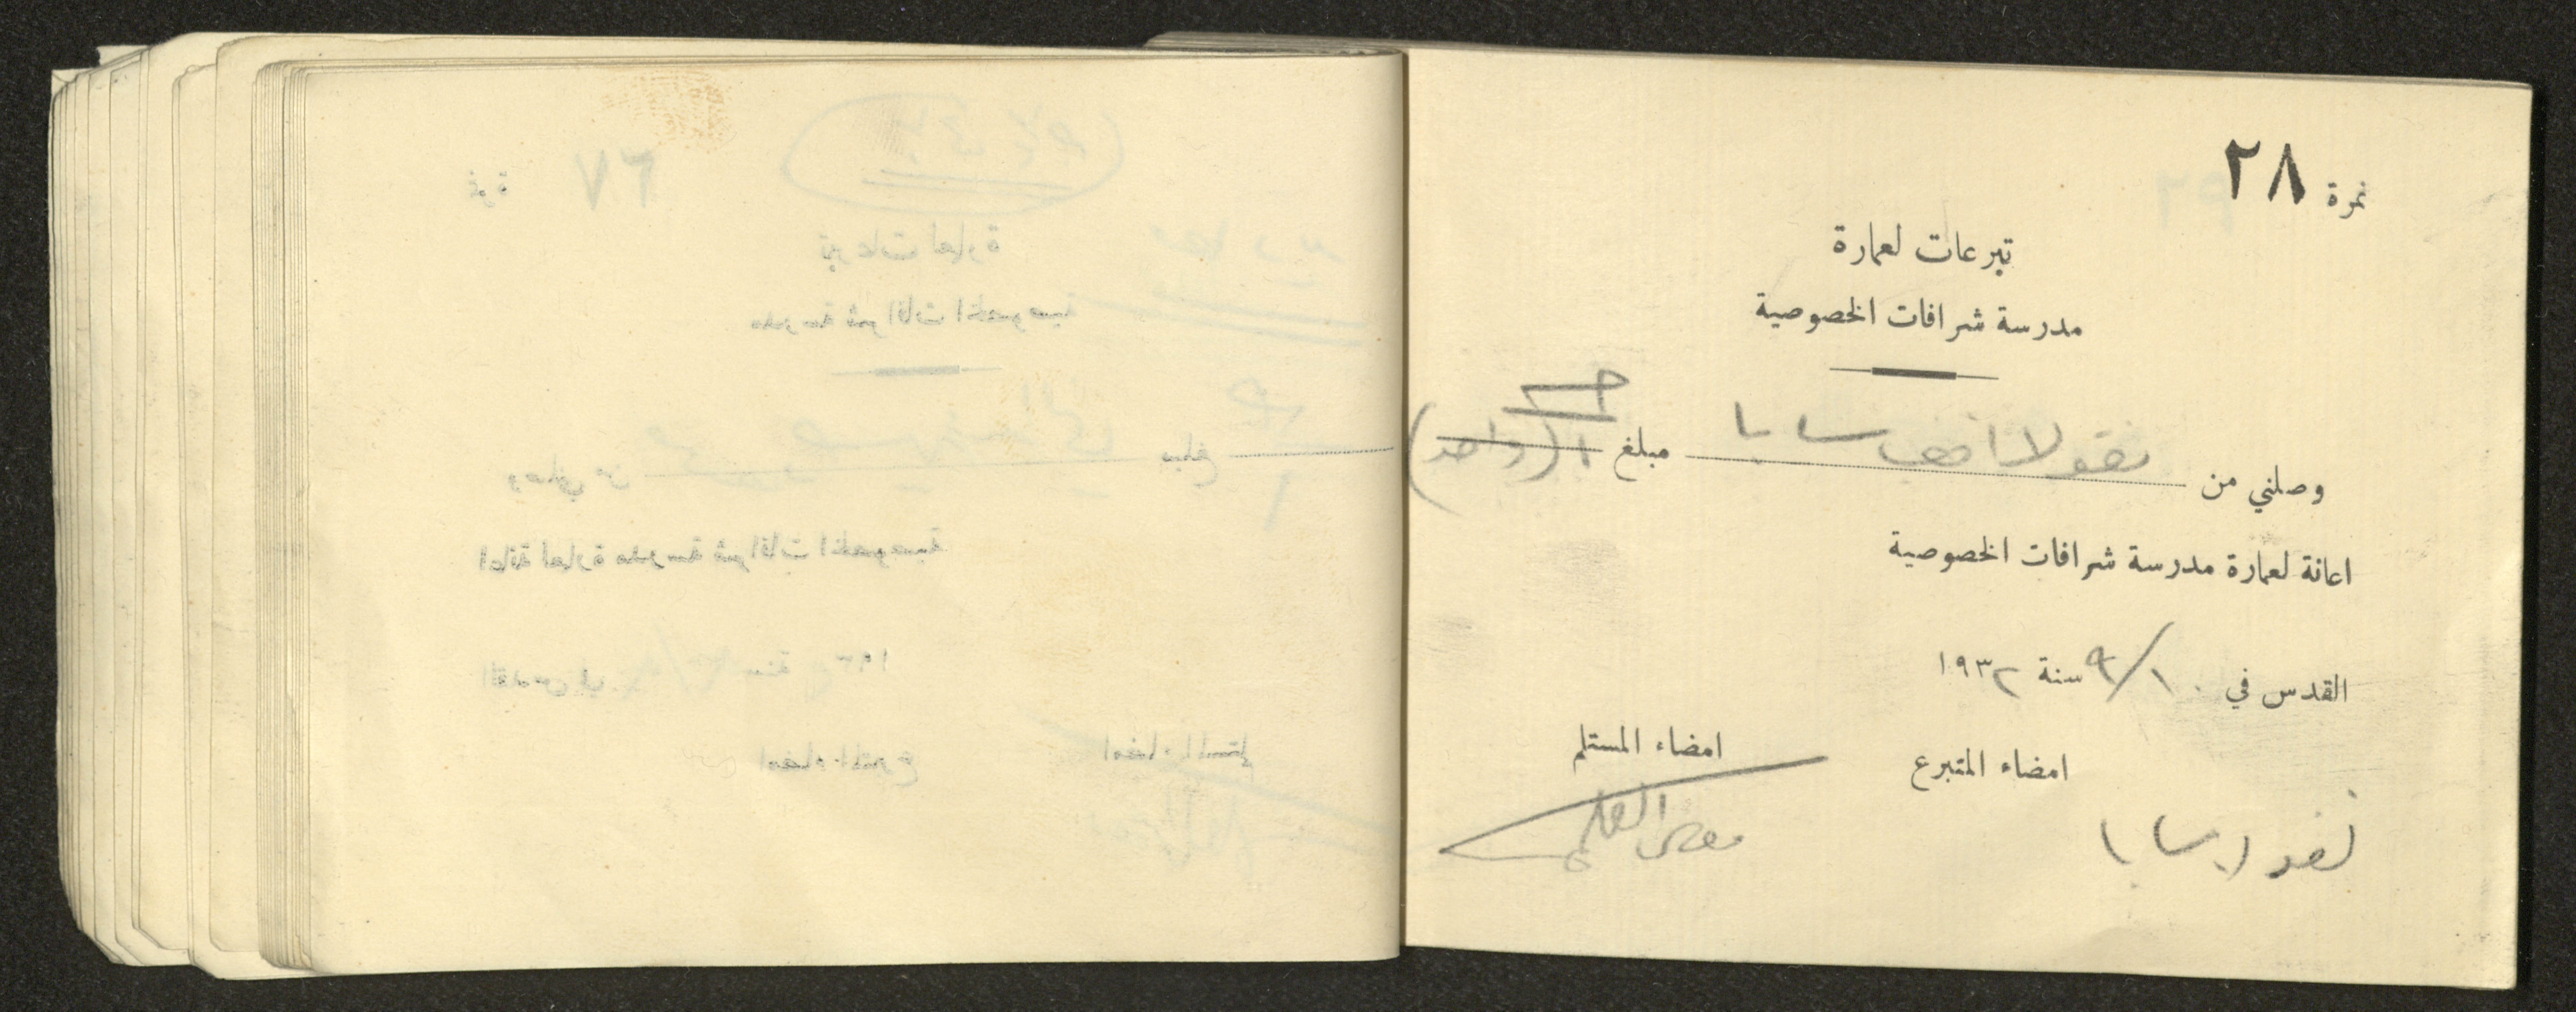 نمرة ٢٨
تبرعات لعمارة
مدرسة شرافات الخصوصية
وصلني من نقولا افندي سابا مبلغ ١ (واحد) جـ
اعانة لعمارة مدرسة شرافات الخصوصية
القدس في ١٠/٩ سنة ١٩٣٢
امضاء المتبرع امضاء المستلم
نقولا سابا